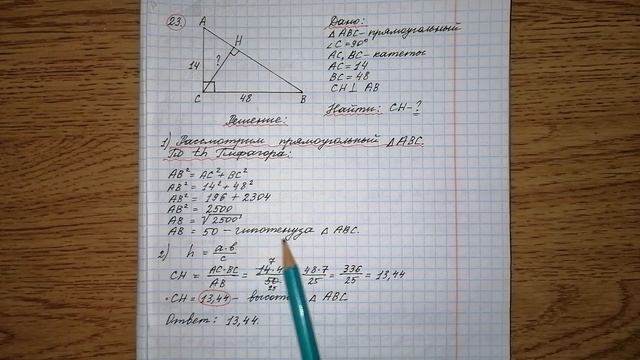 23.
A
H
14
?
C
48
B
Дано:
△ ABC - прямоугольный
∠C = 90°
AC, BC - катеты
AC = 14
BC = 48
CH ⊥ AB
Найти: CH - ?
Решение:
1) Рассмотрим прямоугольный △ ABC.
По th Пифагора:
AB² = AC² + BC²
AB² = 14² + 48²
AB² = 196 + 2304
AB² = 2500
AB = √2500
AB = 50 - гипотенуза △ ABC.
2) h = a·b/c
CH = AC·BC/AB = 14·4/50 7 25 = 48·7/25 = 336/25 = 13,44
CH = 13,44 - высота △ ABC
Ответ: 13,44.